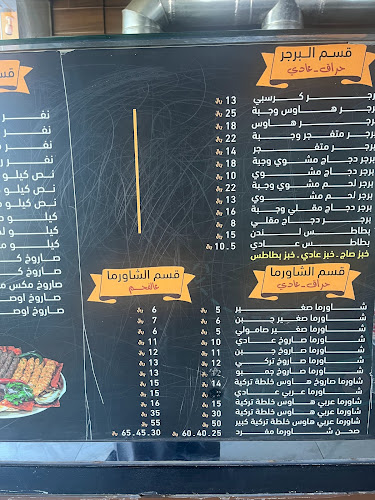 قسم البرجر
حراق - عادي
برجر كرسبي 13
برجر هاوس وجبة 25
برجر هاوس 18
برجر متفجر وجبة 22
برجر متفجر 14
برجر دجاج مشوي وجبة 18
برجر دجاج مشوي 10
برجر لحم مشوي وجبة 22
برجر لحم مشوي 13
برجر دجاج مقلي وجبة 16
برجر دجاج مقلي 8
بطاطس لندن 15
بطاطس عادي 10.5
خبز صاج . خبز عادي . خبز بطاطس
قسم الشاورما
حراق - عادي
شاورما صغير 5
شاورما صغير جبن 6
شاورما صغير صامولي 5
شاورما صاروخ عادي 10
شاورما صاروخ جبن 11
شاورما صاروخ تركي 12
شاورما صاروخ جمبو 12
شاورما صاروخ هاوس خلطة تركية 14
شاورما عربي عادي
شاورما عربي هاوس خلطة تركية 15
شاورما عربي هاوس خلطة تركية 30
شاورما عربي هاوس خلطة تركية كبير 50
صحن شاورما مفرد 60.40.25
قسم الشاورما
عاللحم
6
7
6
11
12
13
13
15
16
16
35
55
65.45.30
قس
نفر
نفر
نفر
نفر
نص كيلو
نص كيلو
نص كيلو
كيلو
كيلو
كيلو
صاروخ ك
صاروخ ك
صاروخ مكس م
صاروخ اوص
صاروخ اوص